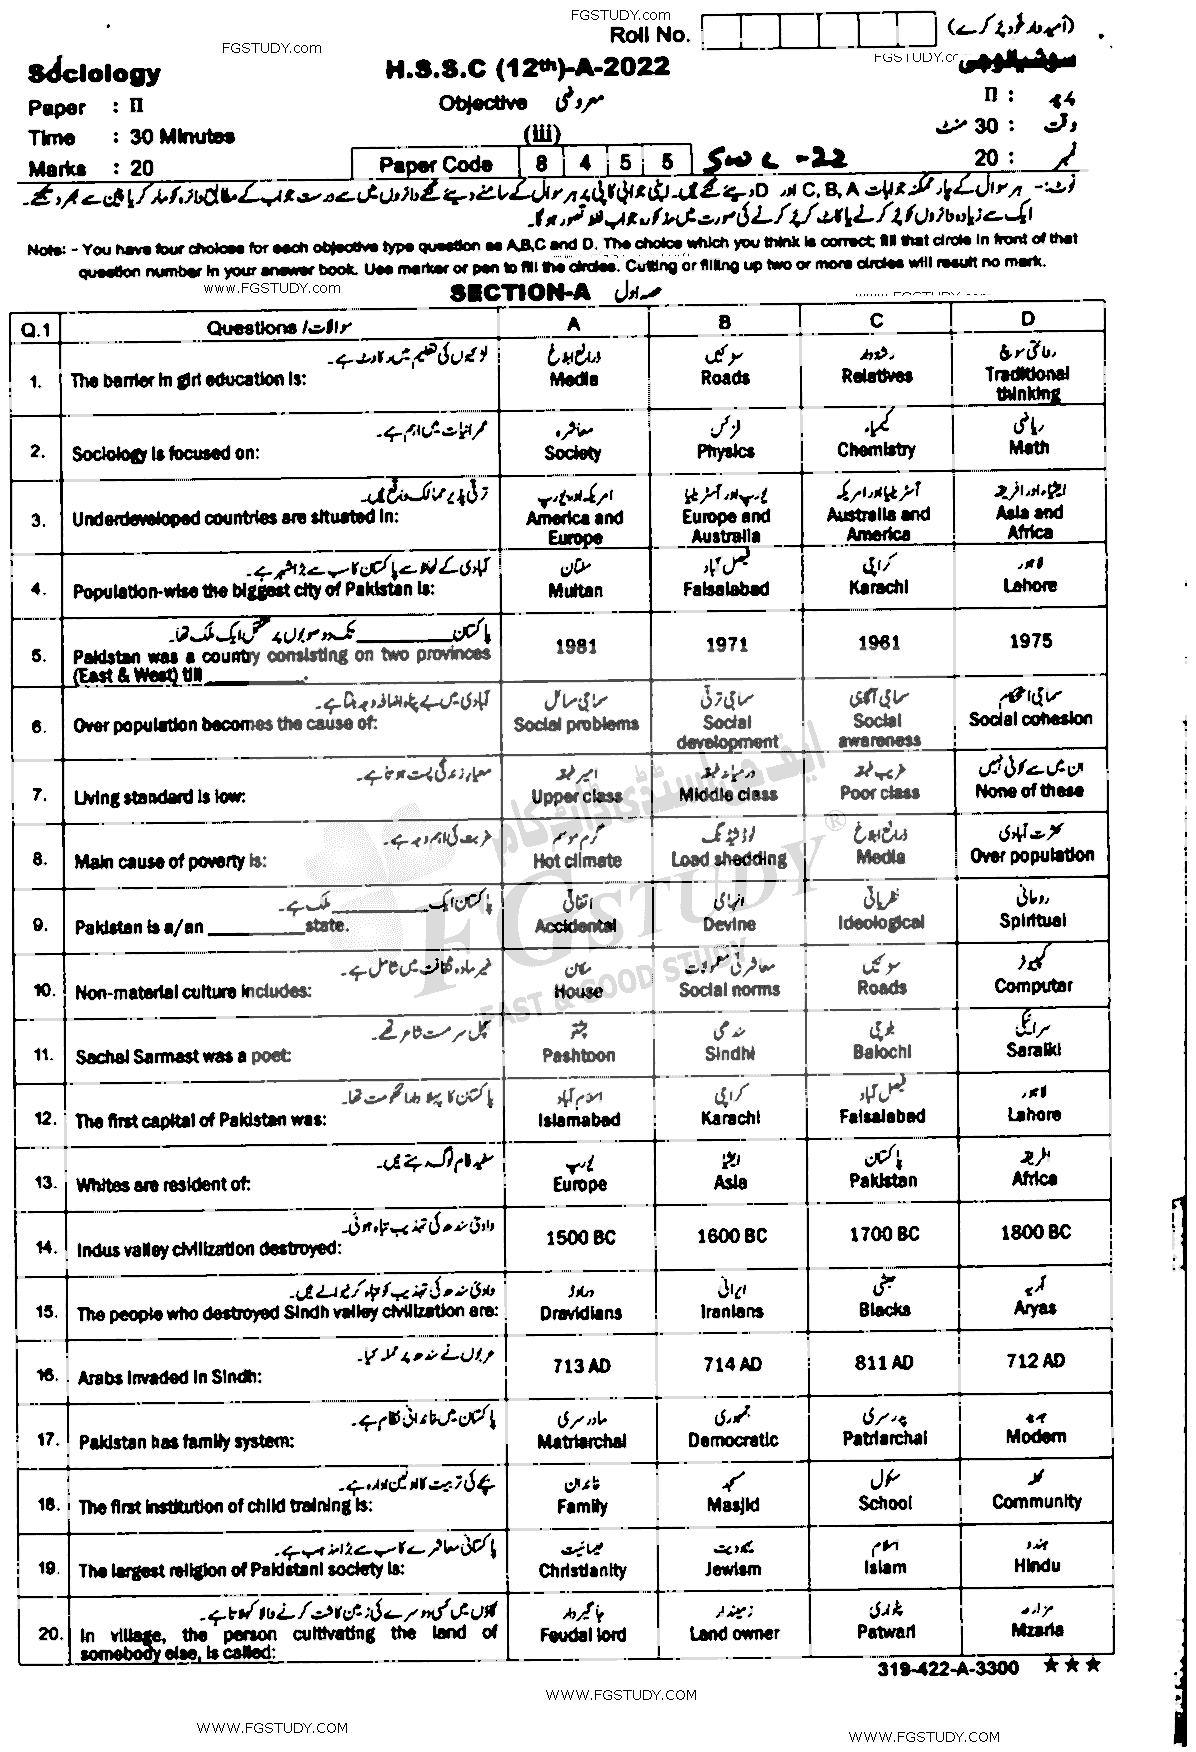 FGSTUDY.com
Roll No. (امیدوار خود پُر کرے)
FGSTUDY.com
FGSTUDY.co
Sociology H.S.S.C (12th)-A-2022 سوشیالوجی
Paper : II Objective معروضی II :
Time : 30 Minutes (iii) وقت : 30 منٹ
Marks : 20 Paper Code 8 4 5 5 نمبر : 20
Note: - You have four choices for each objective type question as A,B,C and D. The choice which you think is correct; fill that circle in front of that
question number in your answer book. Use marker or pen to fill the circles. Cutting or filling up two or more circles will result no mark.
www.FGSTUDY.com
SECTION-A حصہ اول
www.FGSTUDY.com
Q.1 Questions / سوالات A B C D
لڑکیوں کی تعلیم میں رکاوٹ ہے۔ ذرائع ابلاغ سڑکیں رشتہ دار
1. The barrier in girl education is: Media Roads Relatives Traditional thinking
عمرانیات میں اہم ہے۔ معاشرہ فزکس کیمیاء ریاضی
2. Sociology is focused on: Society Physics Chemistry Math
ترقی پذیر ممالک واقع ہیں۔ امریکہ اور یورپ یورپ اور آسٹریلیا آسٹریلیا اور امریکہ ایشیاء اور افریقہ
3. Underdeveloped countries are situated in: America and Europe Europe and Australia Australia and America Asia and Africa
آبادی کے لحاظ سے پاکستان کا سب سے بڑا شہر ہے۔ ملتان فیصل آباد کراچی لاہور
4. Population-wise the biggest city of Pakistan is: Multan Faisalabad Karachi Lahore
پاکستان ________ تک دو صوبوں پر مشتمل ایک ملک تھا۔
5. Pakistan was a country consisting on two provinces (East & West) till ________. 1981 1971 1961 1975
آبادی میں بے پناہ اضافہ وجہ بنتا ہے۔ سماجی مسائل سماجی ترقی سماجی آگاہی سماجی استحکام
6. Over population becomes the cause of: Social problems Social development Social awareness Social cohesion
معیار زندگی پست ہوتا ہے۔ امیر طبقہ درمیانہ طبقہ غریب طبقہ ان میں سے کوئی نہیں
7. Living standard is low: Upper class Middle class Poor class None of these
غربت کی اہم وجہ ہے۔ گرم موسم لوڈ شیڈنگ ذرائع ابلاغ کثرت آبادی
8. Main cause of poverty is: Hot climate Load shedding Media Over population
پاکستان ایک ________ ملک ہے۔ اتفاقی الہامی نظریاتی روحانی
9. Pakistan is a/an ________ state. Accidental Devine Ideological Spiritual
غیر مادہ ثقافت میں شامل ہے۔ مکان معاشرتی معمولات سڑکیں کمپیوٹر
10. Non-material culture includes: House Social norms Roads Computer
سچل سرمست شاعر تھے۔ پشتو سندھی بلوچی سرائیکی
11. Sachal Sarmast was a poet: Pashtoon Sindhi Balochi Saraiki
پاکستان کا پہلا دارالحکومت تھا۔ اسلام آباد کراچی فیصل آباد لاہور
12. The first capital of Pakistan was: Islamabad Karachi Faisalabad Lahore
سفید فام لوگ رہتے ہیں۔ یورپ ایشیا پاکستان افریقہ
13. Whites are resident of: Europe Asia Pakistan Africa
وادی سندھ کی تہذیب تباہ ہوئی۔
14. Indus valley civilization destroyed: 1500 BC 1600 BC 1700 BC 1800 BC
وادی سندھ کی تہذیب کو تباہ کرنے والے ہیں۔ دراوڑ ایرانی حبشی آریہ
15. The people who destroyed Sindh valley civilization are: Dravidians Iranians Blacks Aryas
عربوں نے سندھ پر حملہ کیا۔
16. Arabs invaded in Sindh: 713 AD 714 AD 811 AD 712 AD
پاکستان میں خاندانی نظام ہے۔ مادر سری جمہوری پدر سری جدید
17. Pakistan has family system: Matriarchal Democratic Patriarchal Modern
بچے کی تربیت کا اولین ادارہ ہے۔ خاندان مسجد سکول محلہ
18. The first institution of child training is: Family Masjid School Community
پاکستانی معاشرے کا سب سے بڑا مذہب ہے۔ عیسائیت یہودیت اسلام ہندو
19. The largest religion of Pakistani society is: Christianity Jewism Islam Hindu
گاؤں میں کسی دوسرے کی زمین کاشت کرنے والا کہلاتا ہے۔ جاگیردار زمیندار پٹواری مزارعہ
20. In village, the person cultivating the land of somebody else, is called: Feudal lord Land owner Patwari Mzaria
319-422-A-3300 ★★★
ایف جی سٹڈی ڈاٹ کام
FGSTUDY ®
FAST & GOOD STUDY
www.FGSTUDY.COM
www.FGSTUDY.COM
www.FGSTUDY.COM